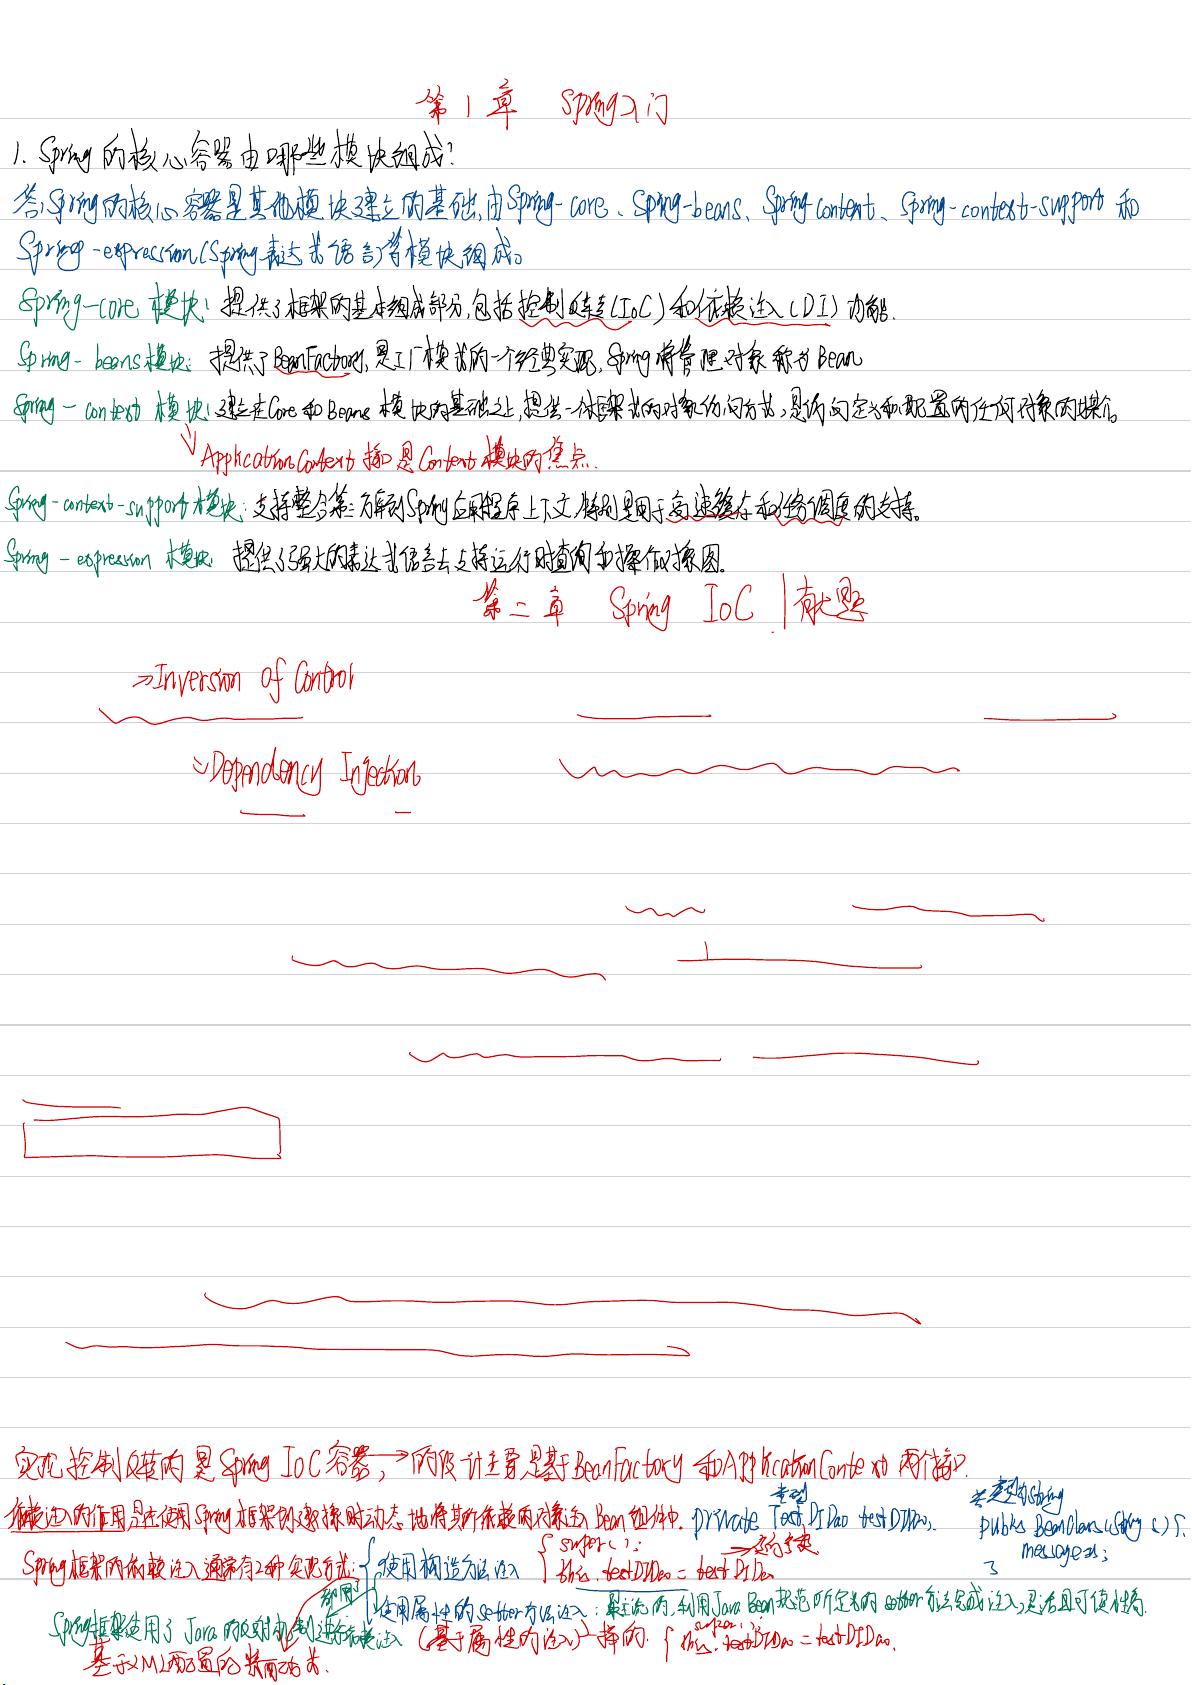 第1章 Spring入门
1. Spring的核心容器由哪些模块组成?
答:Spring的核心容器是其他模块建立的基础,由Spring-core、Spring-beans、Spring-context、Spring-context-support 和
Spring-expression(Spring表达式语言)等模块组成。
Spring-core 模块: 提供了框架的基本组成部分,包括控制反转(IoC)和依赖注入(DI)功能.
Spring-beans模块: 提供了BeanFactory,是工厂模式的一个经典实现,Spring将管理对象称为Bean
Spring-context 模块: 建立在Core和Beans 模块的基础之上,提供一个框架式的对象访问方式,是访问定义和配置的任何对象的媒介。
ApplicationContext 接口是Context 模块的焦点.
Spring-context-support模块: 支持整合第三方库到Spring应用程序上下文,特别是用于高速缓存和任务调度的支持。
Spring-expression 模块: 提供了强大的表达式语言去支持运行时查询和操作对象图.
第二章 Spring IoC
⇒Inversion of Control
⇒Dependency Injection
实现控制反转的是Spring IoC容器, →的设计主要是基于BeanFactory 和ApplicationContext 两个接口.
类型
类型为String
依赖注入的作用是在使用Spring框架创建对象时动态地将其所依赖的对象注入Bean组件中. private TestDIDao testDIDao;
public BeanClass(String s){
message=s;
}
Spring框架的依赖注入通常有2种实现方式: {使用构造方法注入 { super(); this.testDIDao = testDIDao
使用属性的setter方法注入: 最主流的,利用Java Bean规范所定义的setter方法完成注入,灵活且可读性高
都用了
Spring框架使用了Java的反射机制进行依赖注入 (基于属性的注入)一样的. { super(); this.testDIDao = testDIDao.
基于XML配置的装配方式.